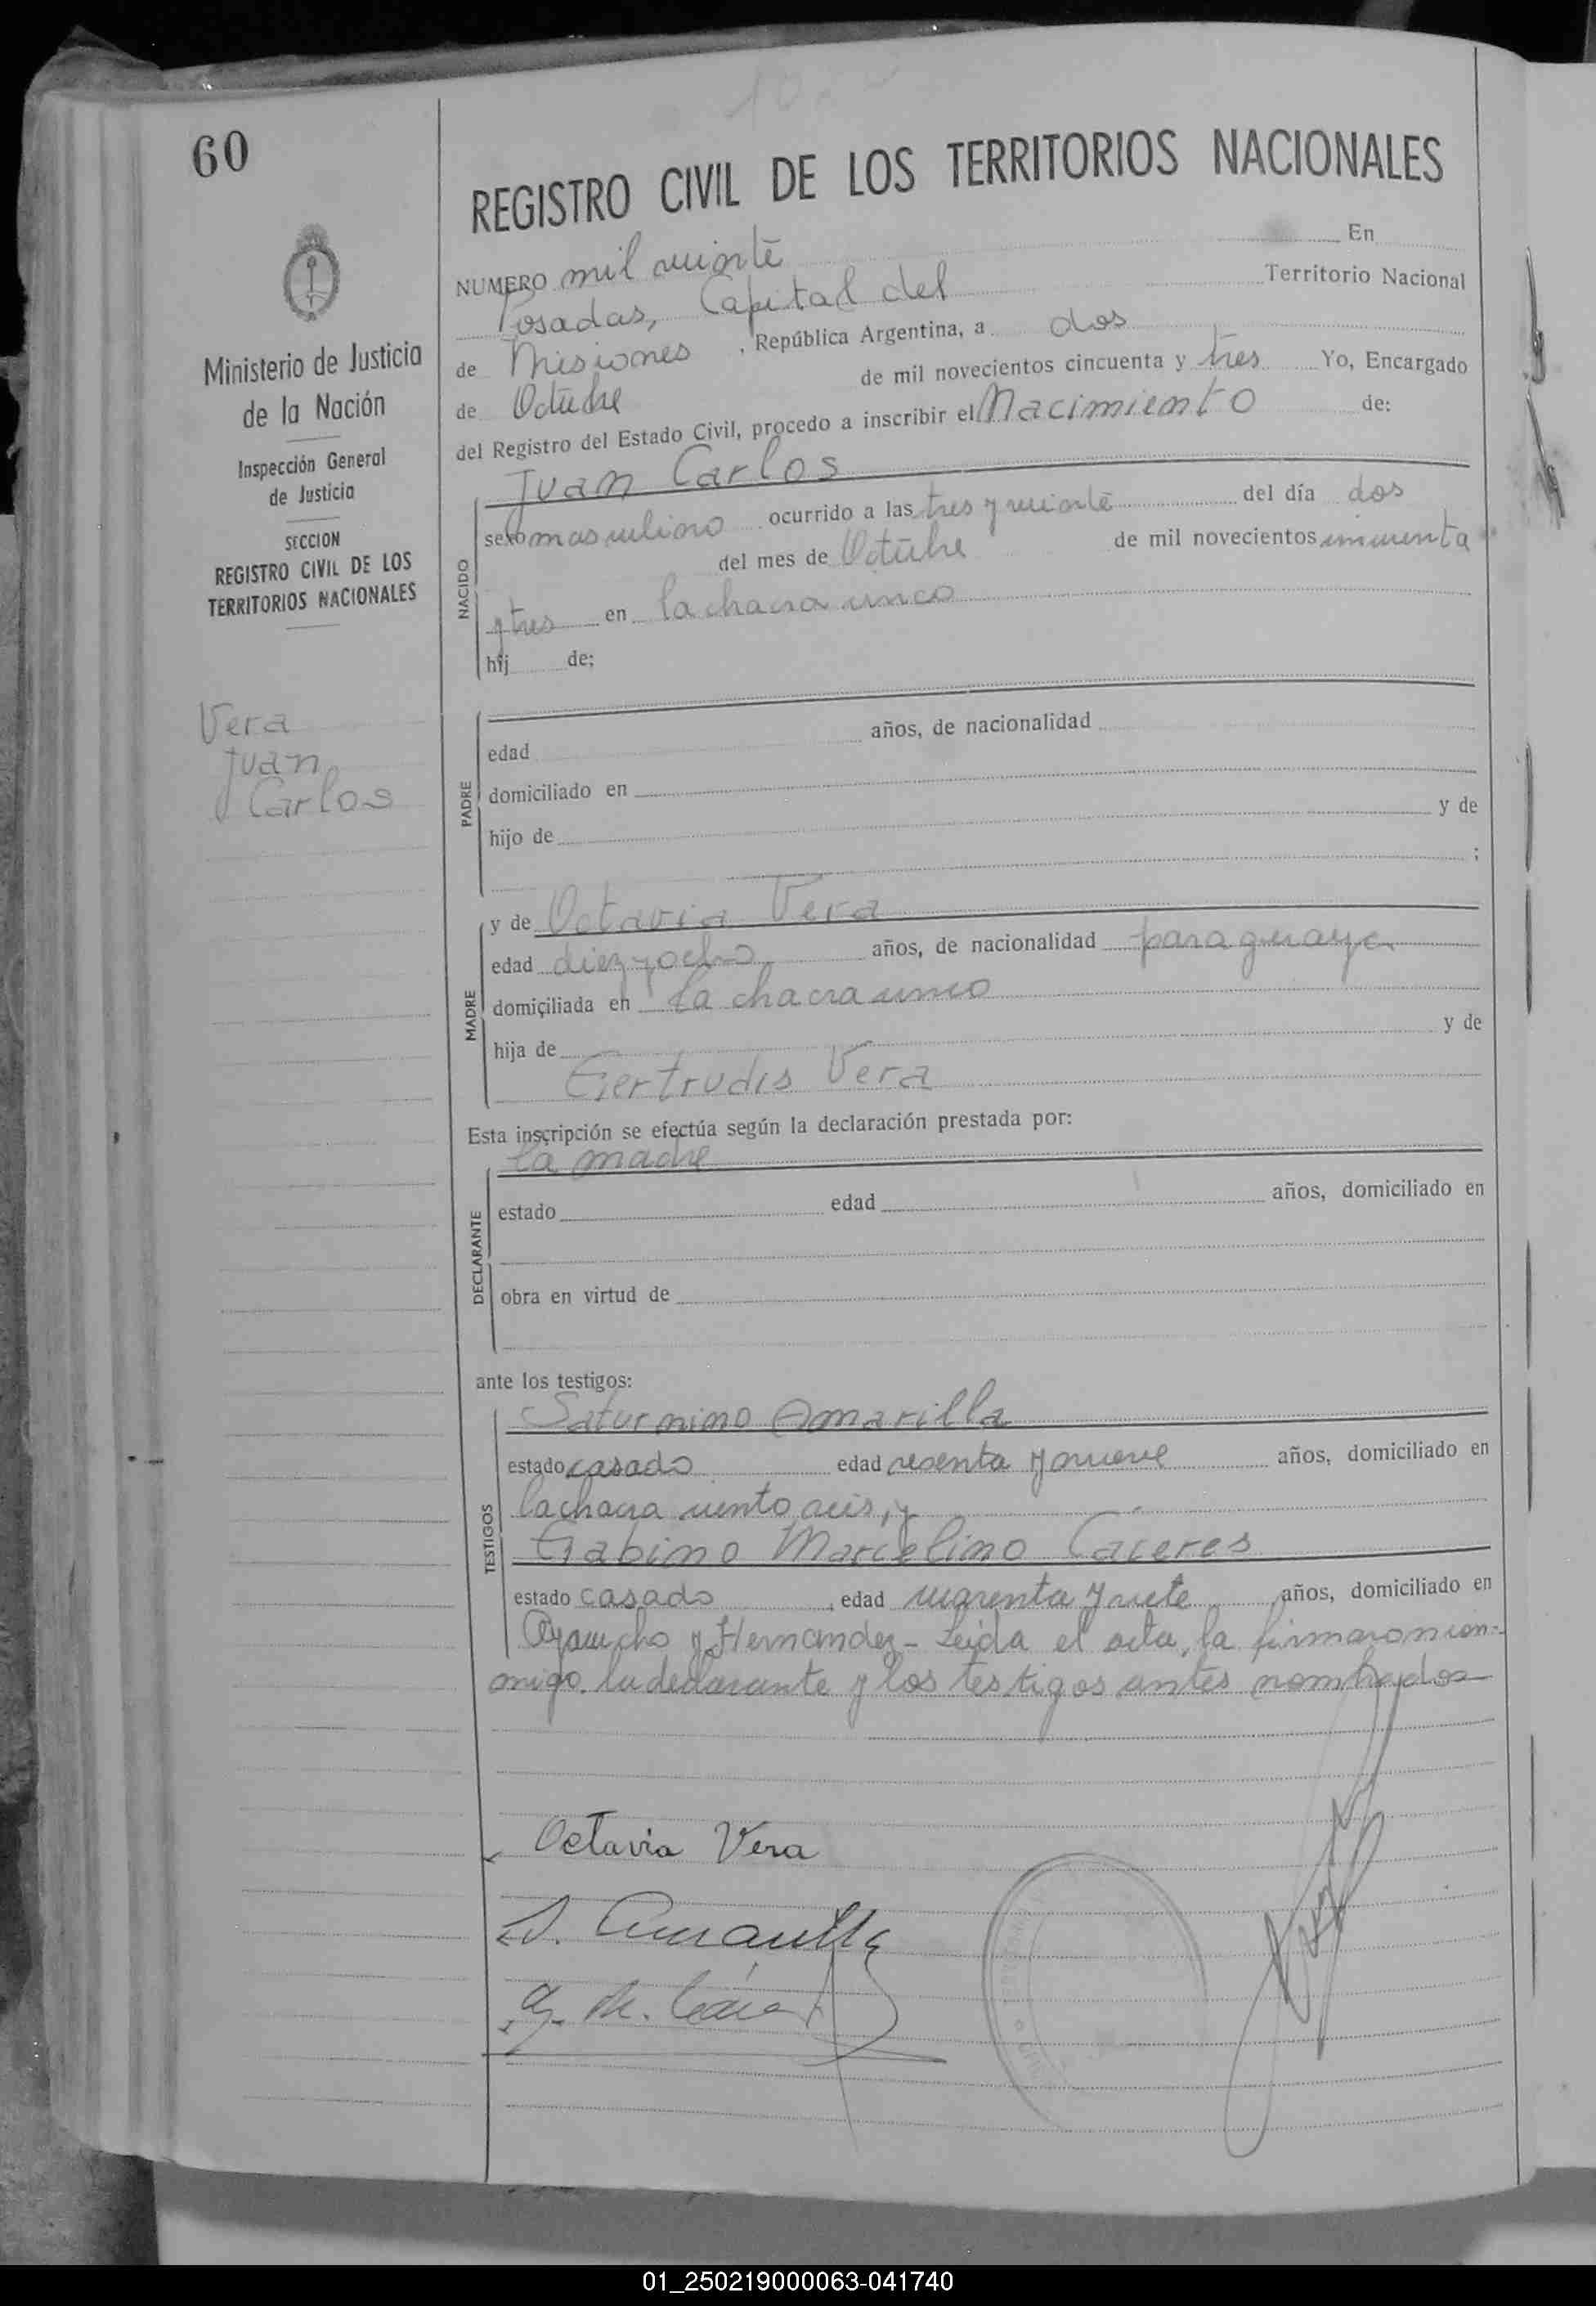 60
REGISTRO CIVIL DE LOS TERRITORIOS NACIONALES
Ministerio de Justicia
de la Nación
Inspección General
de Justicia
SECCION
REGISTRO CIVIL DE LOS
TERRITORIOS NACIONALES
Vera
Juan
Carlos
NUMERO mil veinte En
Posadas, Capital del Territorio Nacional
de Misiones, República Argentina, a dos
de Octubre de mil novecientos cincuenta y tres Yo, Encargado
del Registro del Estado Civil, procedo a inscribir el Nacimiento de:
NACIDO
Juan Carlos
sexo masculino ocurrido a las tres y veinte del día dos
del mes de Octubre de mil novecientos cincuenta
y tres en la chacra cinco
hij de;
PADRE
edad años, de nacionalidad
domiciliado en
hijo de y de
;
MADRE
y de Octavia Vera
edad diez y ocho años, de nacionalidad paraguaya
domiciliada en la chacra cinco
hija de y de
Gertrudis Vera
Esta inscripción se efectúa según la declaración prestada por:
DECLARANTE
la madre
estado edad años, domiciliado en
obra en virtud de
ante los testigos:
TESTIGOS
Saturnino Amarilla
estado casado edad sesenta y nueve años, domiciliado en
la chacra ciento seis, y
Gabino Marcelino Cáceres
estado casado, edad cuarenta y siete años, domiciliado en
Ayacucho y Hernandez - Leida el acta, la firmaron con-
migo la declarante y los testigos antes nombrados
Octavia Vera
S. Amarilla
G. M. Cáceres
01_250219000063-041740